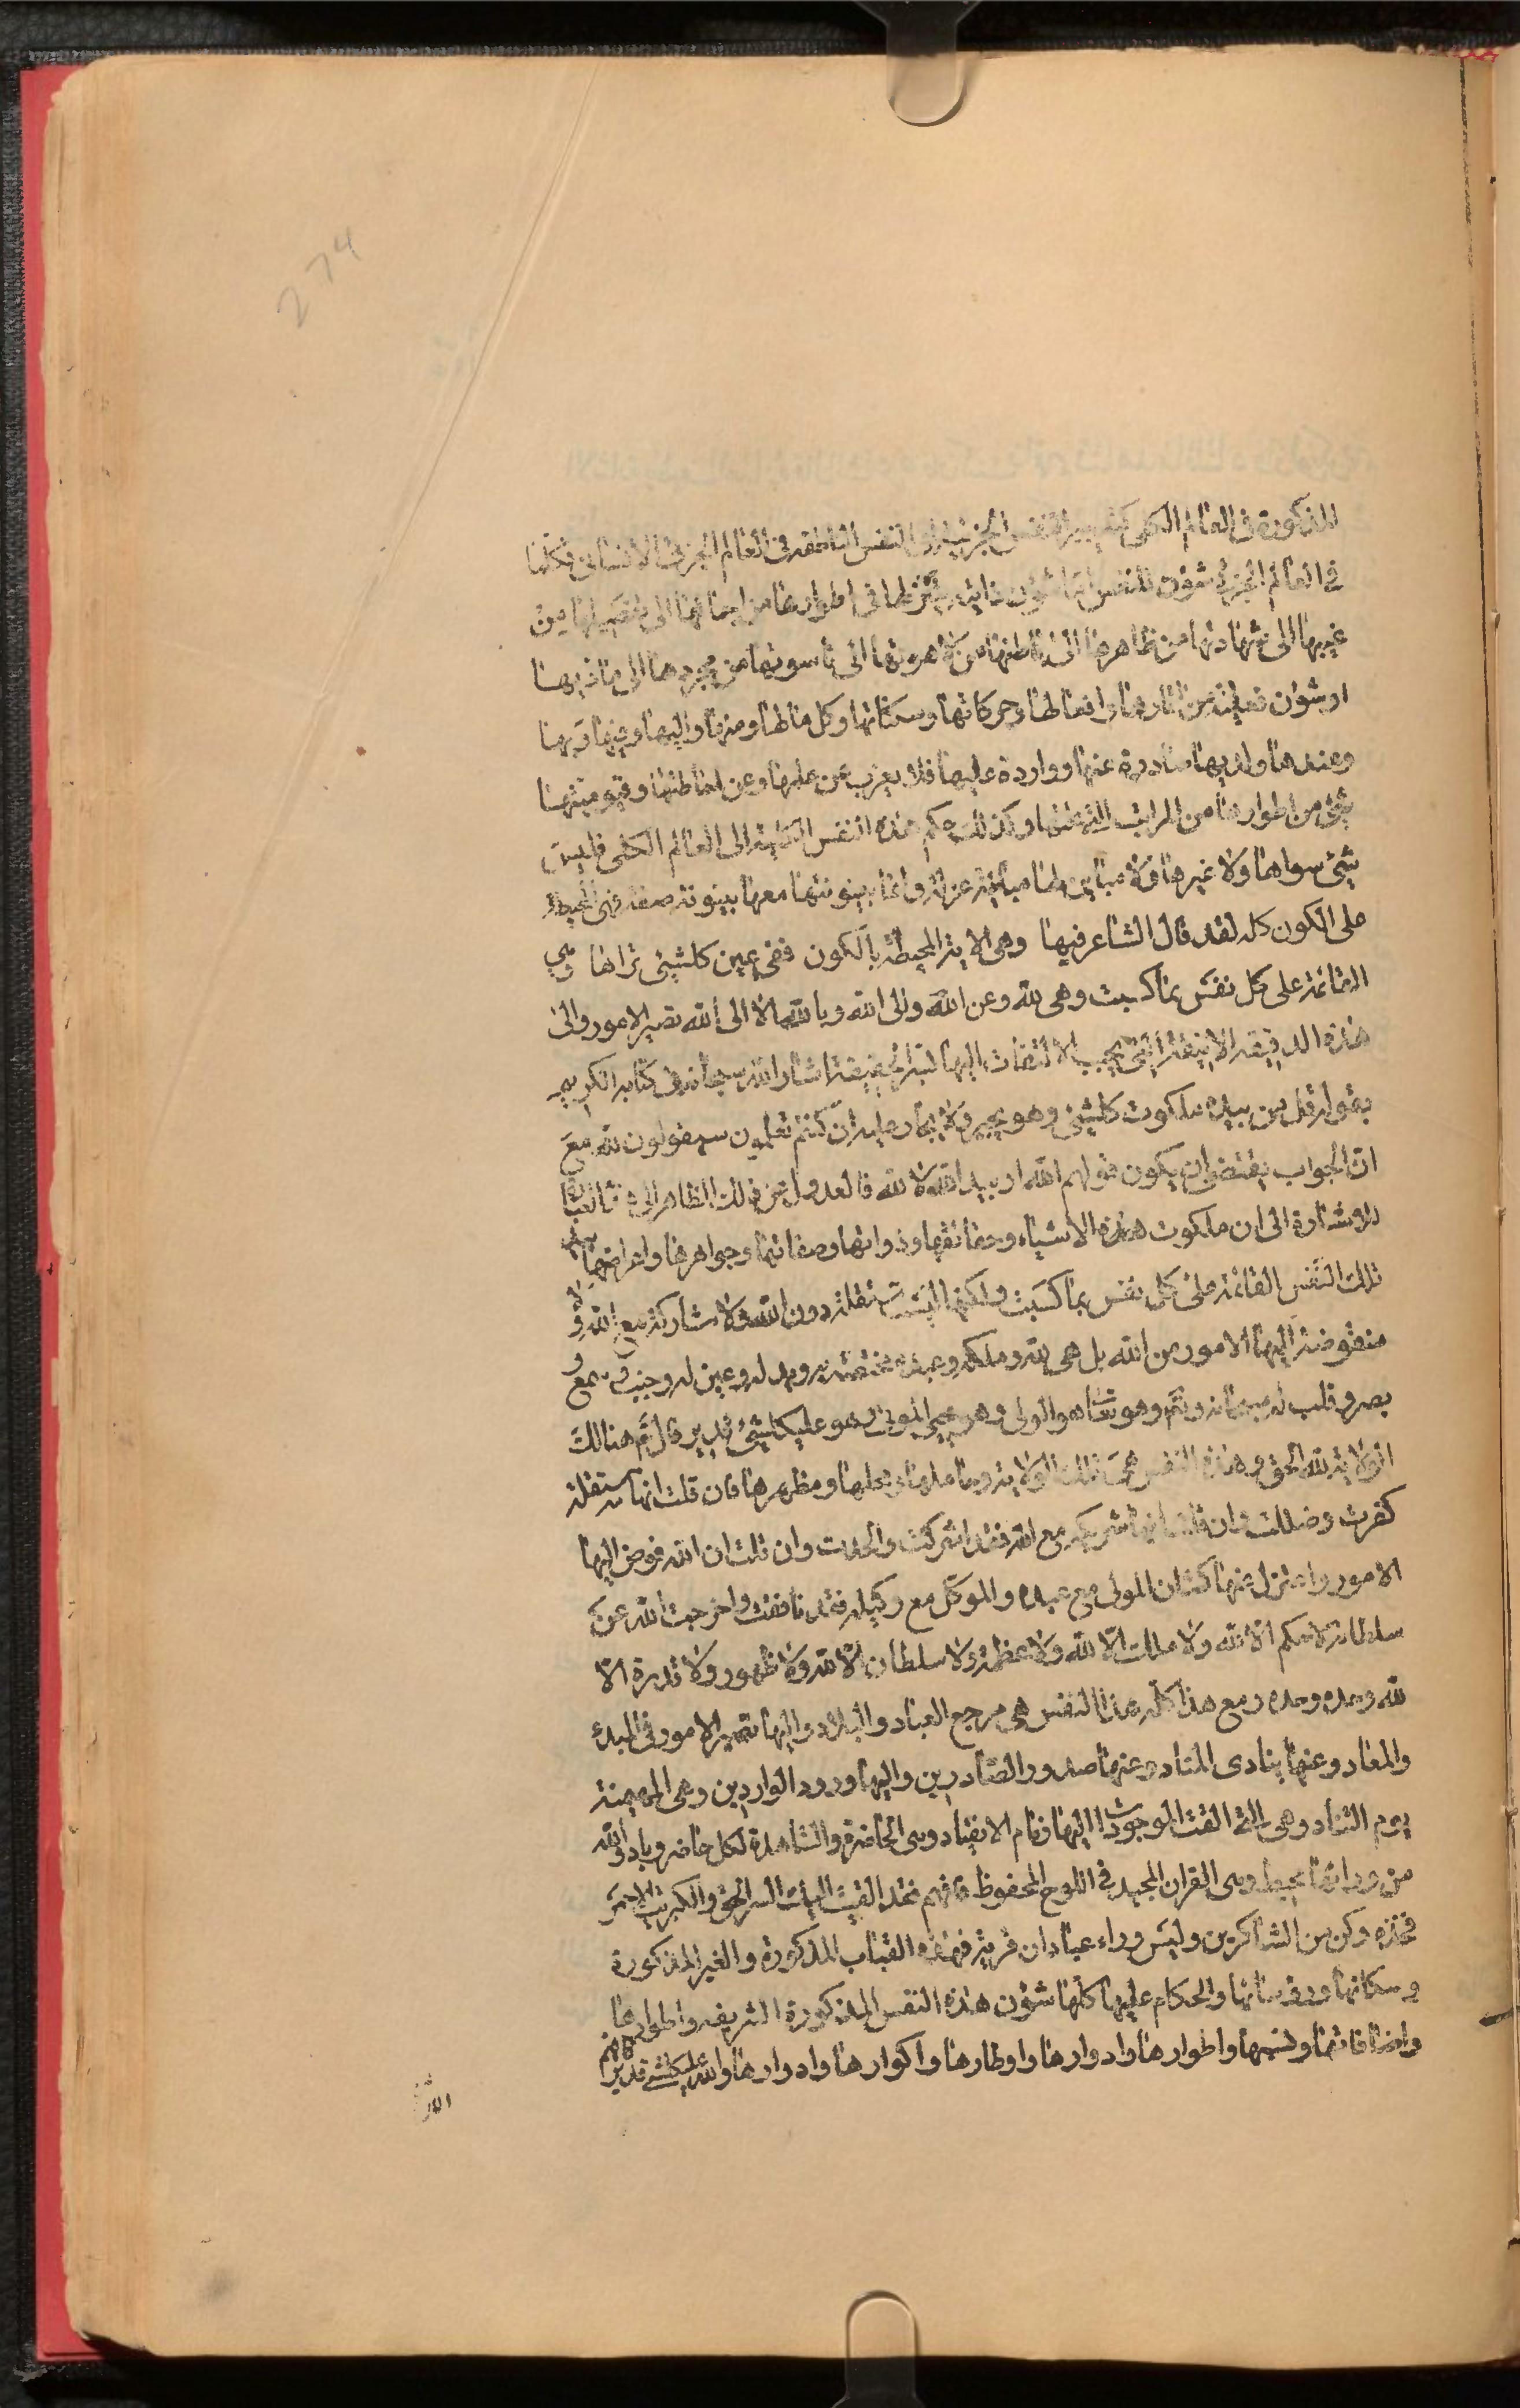 274
المذكورة فى العالم الكلى النفس الجزئية الى النفس الناطقة فى العالم الجزئى الانسانى فكلما
فى العالم الجزئى شؤن للنفس اما شؤن ذاتية بتنزلها فى اطوارها من اجمالها الى تفصيلها من
غيبها الى شهادتها من ظاهرها الى باطنها من لاهوتها الى ناسوتها من مجردها الى ماديها
او شؤن فعلية من اثارها وافعالها وحركاتها وسكناتها وكل ما لها ومنها واليها وفيها وبها
وعندها ولديها صادرة عنها وواردة عليها فلا يعزب عن علمها وعن احاطتها وقيوميتها
شئ من اطوارها من المراتب وكذلك حكم هذه النفس الكلية الى العالم الكلى فليس
شئ سواها ولا غيرها ولا مباين لها مباينة عزلة وانما بينونتها معها بينونة صفة فهى المحيطة
على الكون كله لقد قال الشاعر فيها وهى الاية المحيطة بالكون ففى عين كلشيئ تراها وهى
القائمة على كل نفس بما كسبت وهى لله وعن الله والى الله وبالله الا الى الله تصير الامور والى
هذه الدقيقة الانيقة التى يجب الالتفات اليها الحقيقة اشار الله سبحانه فى كتابه الكريم
بقوله قل من بيده ملكوت كلشيئ وهو يجير ولا يجار عليه ان كنتم تعلمون سيقولون لله مع
ان الجواب يقتضى ان يكون قولهم الله او بيد الله لا لله فالعدول عن ذلك الظاهر الى
للاشارة الى ان ملكوت هذه الاشياء وحقائقها وذواتها وصفاتها وجواهرها واعراضها بيد
تلك النفس القائمة على كل نفس بما كسبت ولكنها ليست مستقلة دون الله ولا مشاركة مع الله ولا
مفوضة اليها الامور من الله بل هى لله وملكه وعبده مختصة به ويد له وعين له وجنب وسمع و
بصر وقلب له سبحانه وتع وهو تعا هو الولى وهو يحيى الموتى وهو عليكلشيئ قدير قال تع هنالك
الولاية لله الحق وهذه النفس هى تلك الولاية وحاملها ومحلها ومظهرها فان قلت انها مستقلة
كفرت وضللت وان قلت انها شريكه مع الله فقد اشركت والحدت وان قلت ان الله فوض اليها
الامور واعتزل عنها كشان المولى مع عبده والموكل مع وكيله فقد نافقت واخرجت الله عن
سلطانه لا حكم الا لله ولا ملك الا لله ولا عظمة ولا سلطان الا لله ولا ظهور ولا قدرة الا
لله وحده وحده ومع هذا كله هذا النفس هى مرجع العباد والبلاد واليها تصير الامور فى المبدء
والمعاد وعنها ينادى المناد وعنها صدور الصادرين واليها ورود الواردين وهى المهيمنة
يوم التناد وهى التى القت الموجودات اليها زمام الانقياد وهى الحاضرة والشاهدة لكل حاضر وباد والله
من ورائها محيط وهى القران المجيد فى اللوح المحفوظ فافهم فقد القيت اليك السر الحق والكبريت الاحمر
فخذه وكن من الشاكرين وليس وراء عبادان قرية فهذه القباب المذكورة والغير المذكورة
وسكانها ورؤسائها والحكام عليها كلها شؤن هذه النفس المذكورة الشريفه واطوارها
واضافاتها ونسبها واطوارها وادوارها واوطارها واكوارها وادوارها والله عليكلشيئ قدير فافهم